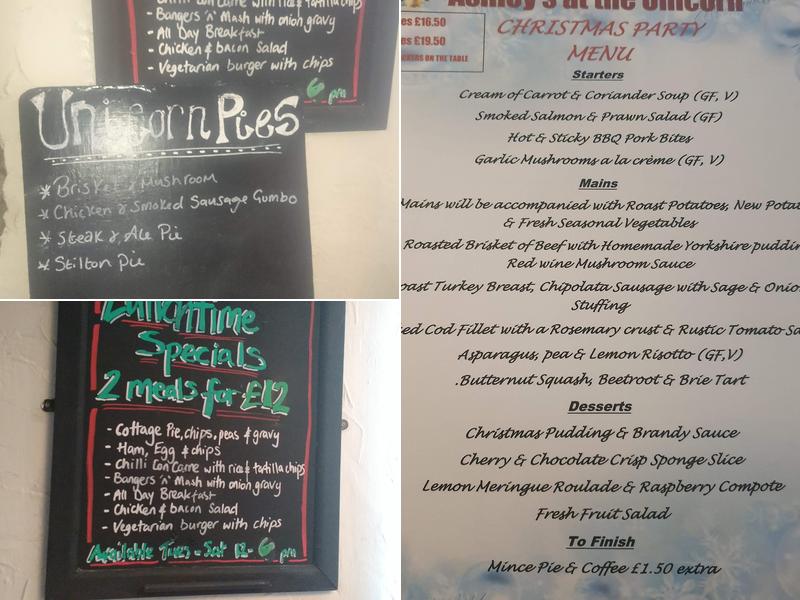 Chilli Con Carne with rice & tortilla chips
- Bangers 'n' Mash with onion gravy
- All Day Breakfast
- Chicken & bacon Salad
- Vegetarian burger with chips
6 pm
Unicorn Pies
* Brisket & Mushroom
* Chicken & Smoked Sausage Gumbo
* Steak & Ale Pie
* Stilton Pie
Lunchtime
Specials
2 meals for £12
- Cottage Pie, chips, peas & gravy
- Ham, Egg & chips
- Chilli Con Carne with rice & tortilla chips
- Bangers 'n' Mash with onion gravy
- All Day Breakfast
- Chicken & bacon Salad
- Vegetarian burger with chips
Available Tues - Sat 12 - 6 pm
Ashley's at the Unicorn
es £16.50
es £19.50
CKERS ON THE TABLE
CHRISTMAS PARTY
MENU
Starters
Cream of Carrot & Coriander Soup (GF, V)
Smoked Salmon & Prawn Salad (GF)
Hot & Sticky BBQ Pork Bites
Garlic Mushrooms a la crème (GF, V)
Mains
Mains will be accompanied with Roast Potatoes, New Potat
& Fresh Seasonal Vegetables
Roasted Brisket of Beef with Homemade Yorkshire puddin
Red wine Mushroom Sauce
oast Turkey Breast, Chipolata Sausage with Sage & Onio
Stuffing
ed Cod Fillet with a Rosemary crust & Rustic Tomato Sa
Asparagus, pea & Lemon Risotto (GF,V)
.Butternut Squash, Beetroot & Brie Tart
Desserts
Christmas Pudding & Brandy Sauce
Cherry & Chocolate Crisp Sponge Slice
Lemon Meringue Roulade & Raspberry Compote
Fresh Fruit Salad
To Finish
Mince Pie & Coffee £1.50 extra